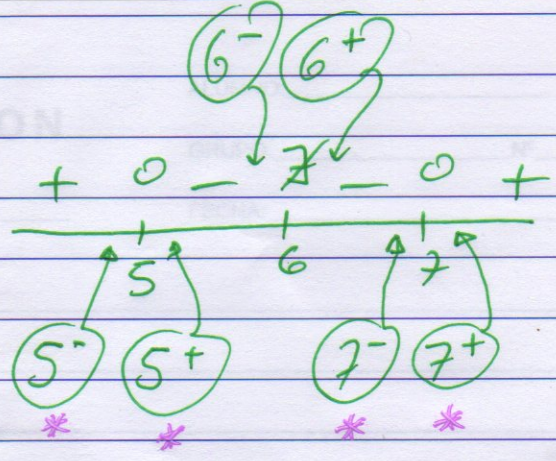 6⁻ 6⁺
+ 0 − ∄ − 0 +
5 6 7
5⁻ 5⁺ 7⁻ 7⁺
* * * *